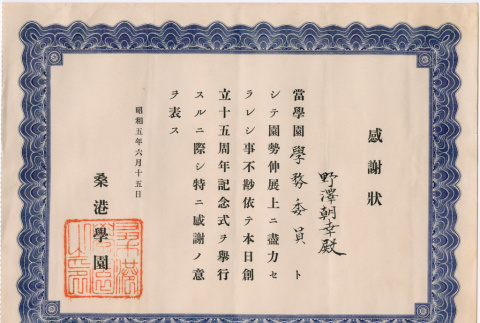 感謝狀
野澤朝幸殿
當學園學務委員ト
シテ園勢伸展上ニ盡力セ
ラレシ事不尠依テ本日創
立十五周年記念式ヲ擧行
スルニ際シ特ニ感謝ノ意
ヲ表ス
昭和五年六月十五日
桑港學園